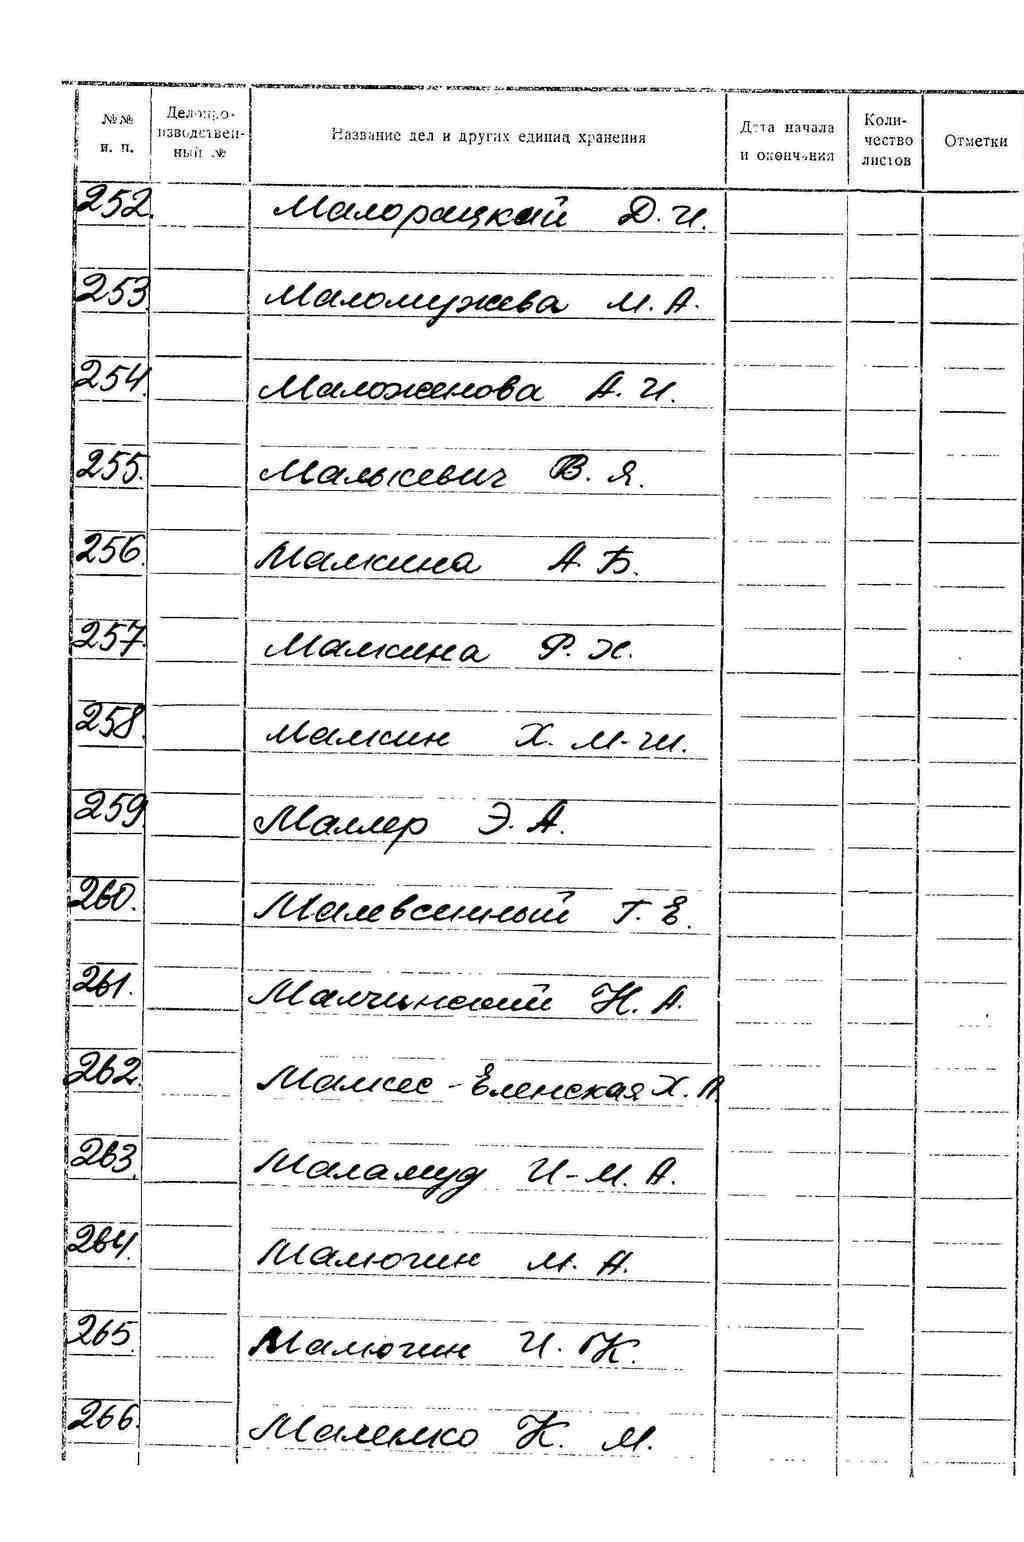 №№ п. п.
Делопро-
изводствен-
ный №
Название дел и других единиц хранения
Дата начала
и окончания
Коли-
чество
листов
Отметки
252. Малорацкий Д. И.
253 Маломужева М. А.
254. Маложенова А. И.
255. Малькевич В. Я.
256. Малкина А. Б.
257. Малкина Р. Х.
258. Малкин Х. М-Ш.
259. Маллер Э. А.
260. Г. Е.
261. Малчинский Н. А.
262. Малкес-Еленская Х. А.
263. Маламуд И-М. А.
264. Малюгин М. А.
265. Малюгин И. К.
266. Маленко К. М.